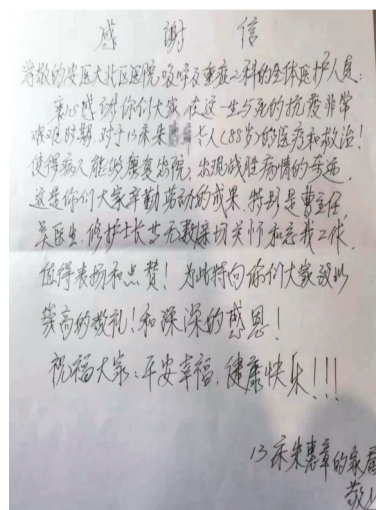 感谢信
尊敬的安医大北区医院呼吸及重症二科的全体医护人员:
衷心感谢你们大家在这一生与死的抗疫非常
艰难时期.对于13床朱老人(88岁)的医疗和救治!
使得病人能够康复出院,出现战胜病情的奇迹.
这是你们大家辛勤劳动的成果.特别是曹主任,
吴医生.修护士长其无数亲切关怀和忘我工作.
值得表扬和点赞!为此特向你们大家致以
崇高的敬礼!和深深的感恩!
祝福大家:平安幸福.健康快乐!!!
13床朱惠章的家属
敬上